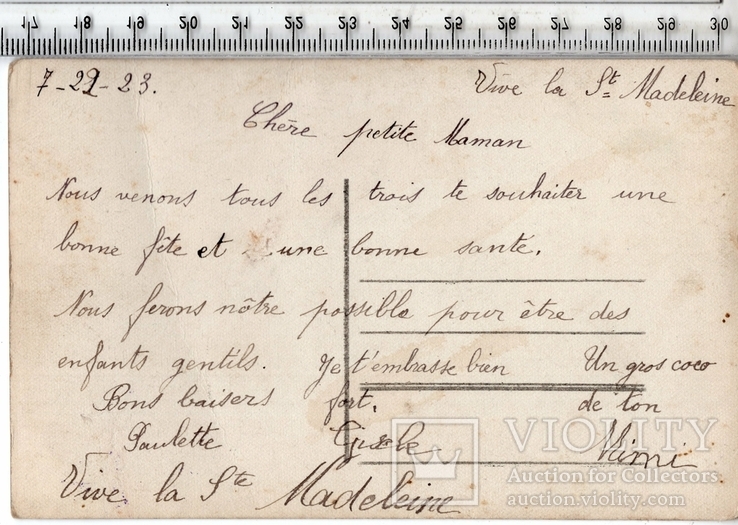 17 18 19 20 21 22 23 24 25 26 27 28 29 30
7-22-23.
Vive la Ste Madeleine
Chère petite Maman
Nous venons tous les trois te souhaiter une
bonne fête et une bonne santé.
Nous ferons nôtre possible pour être des
enfants gentils. Je t'embrasse bien Un gros coco
Bons baisers fort. de ton
Paulette Gisele Mimi
Vive la Ste Madeleine
VIOLITY
Auction for Collectors
auction.violity.com